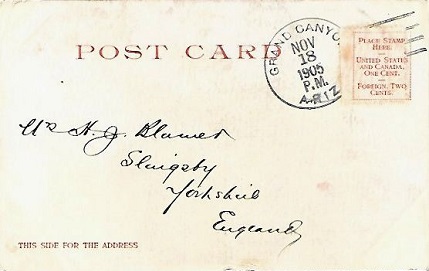 POST CARD
GRAND CANYO
NOV
18
1905
P.M.
ARIZ
PLACE STAMP
HERE.
UNITED STATES
AND CANADA,
ONE CENT.
FOREIGN, TWO
CENTS.
H. J.
Slingsby
Yorkshire
England
THIS SIDE FOR THE ADDRESS